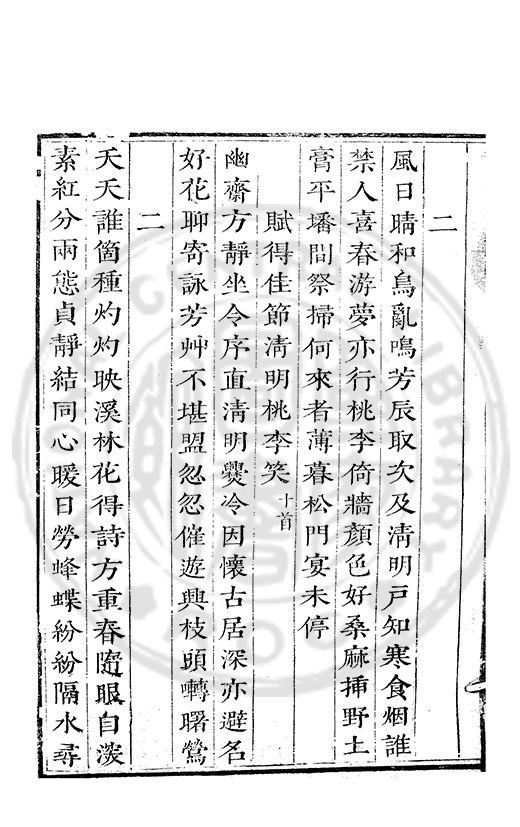 二
風日晴和鳥亂鳴芳辰取次及淸明戸知寒食烟誰
禁人喜春游夢亦行桃李倚牆顏色好桑麻揷野土
膏平墦間祭掃何來者薄暮松門宴未停
賦得佳節淸明桃李笑十首
幽齋方靜坐令序直淸明爨冷因懷古居深亦避名
好花聊寄詠芳艸不堪盟忽忽催遊興枝頭囀曙鶯
二
夭夭誰箇種灼灼映溪林花得詩方重春隨眼自淡
素紅分兩態貞靜結同心暖日勞蜂蝶紛紛隔水尋